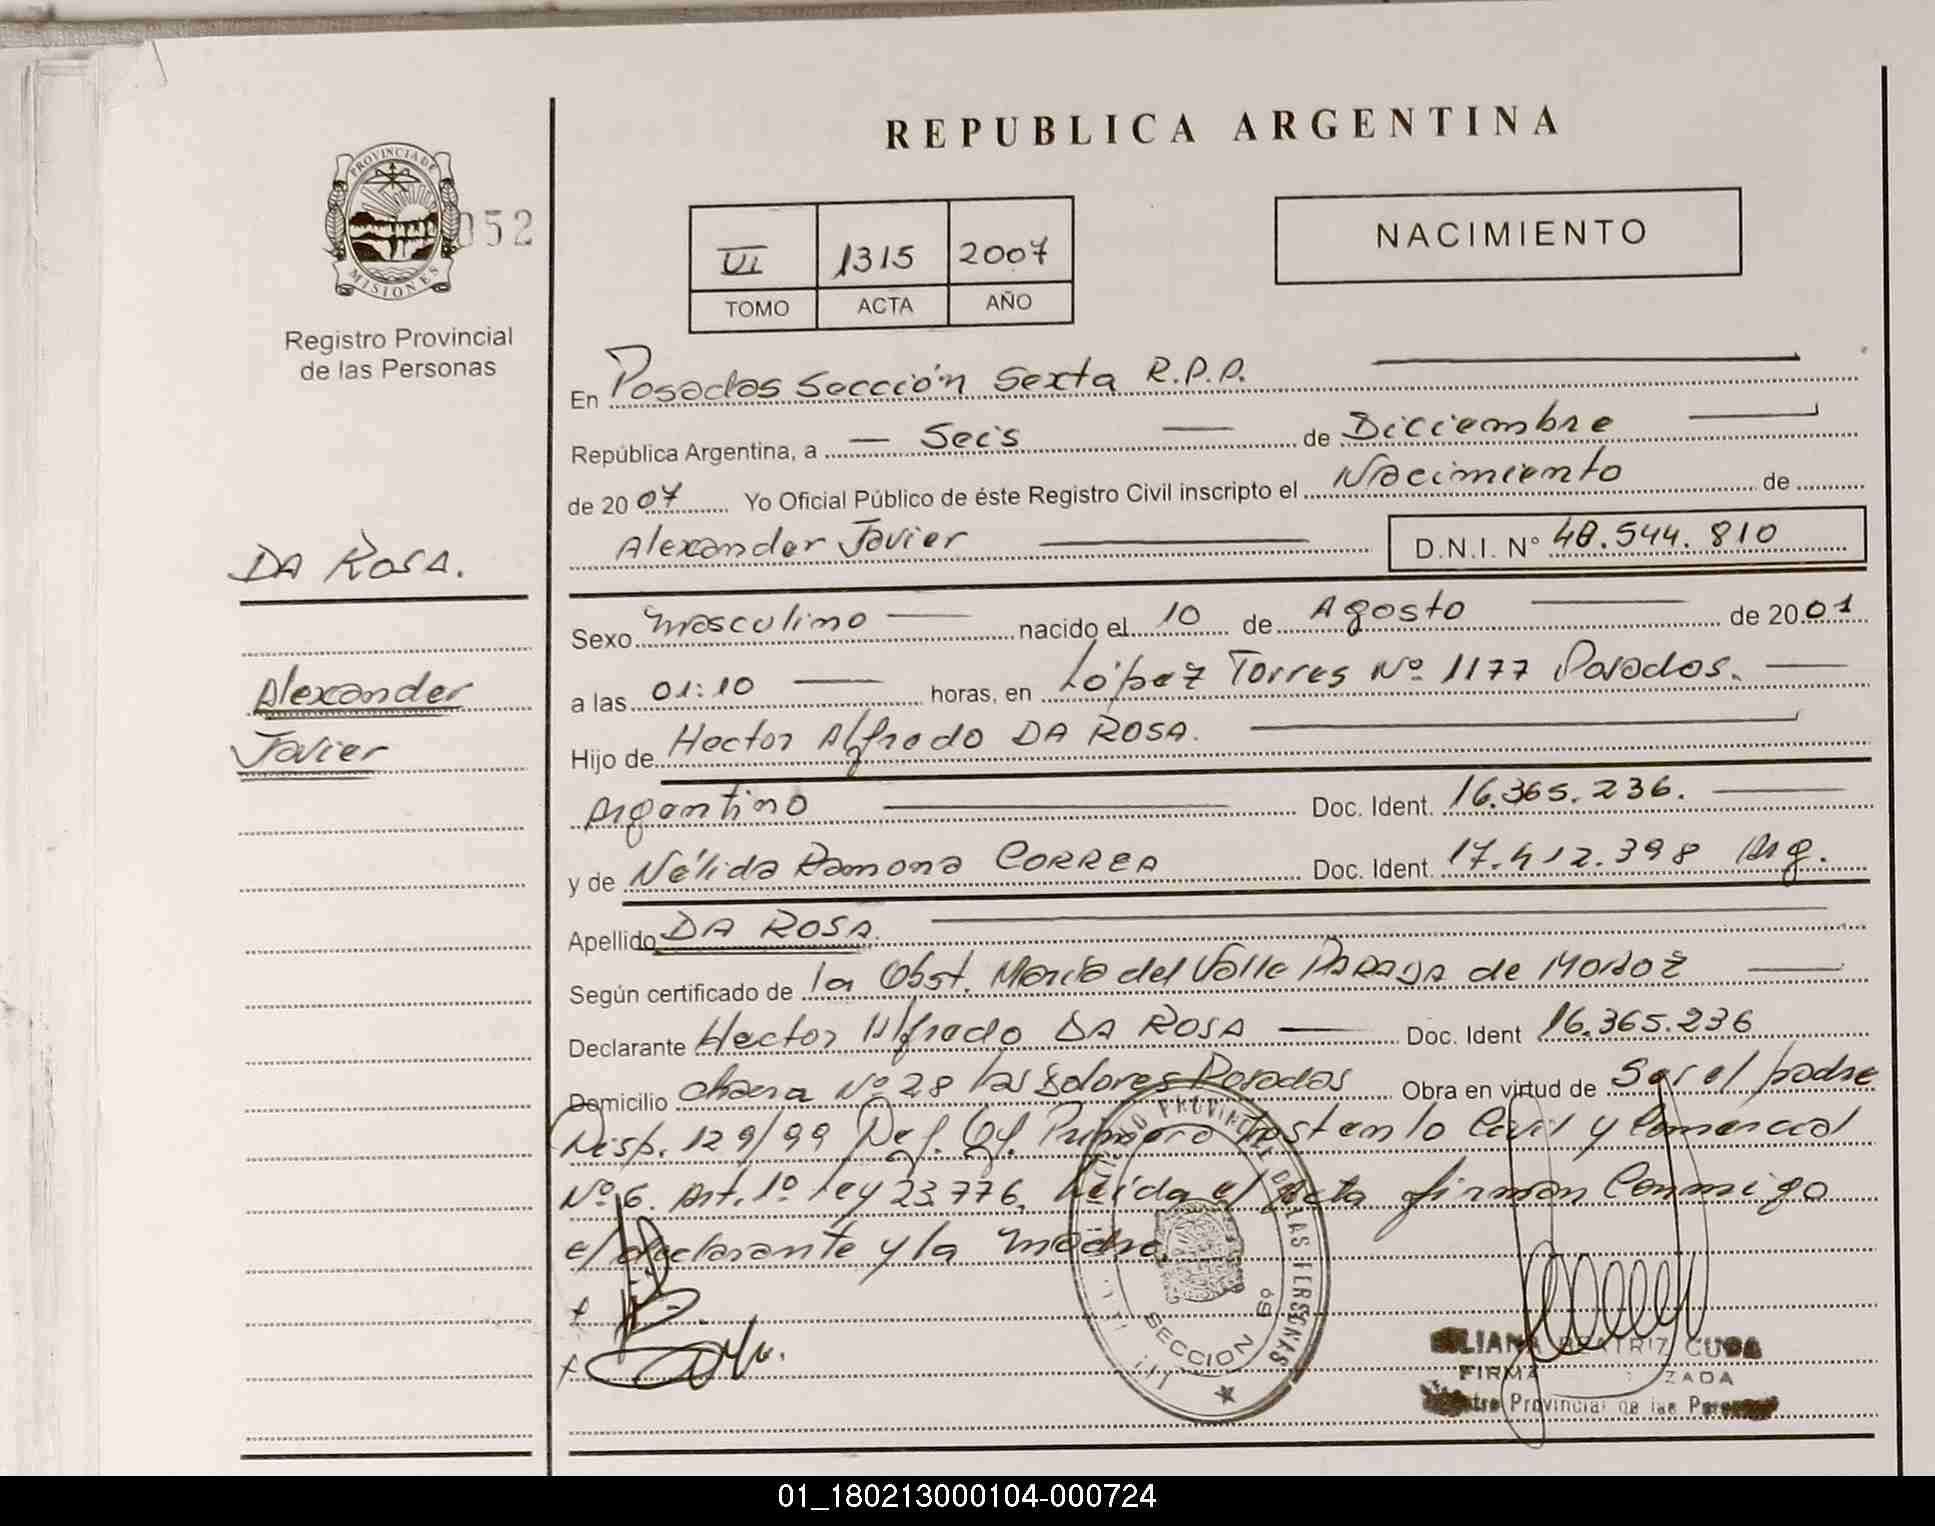 REPUBLICA ARGENTINA
PROVINCIA DE
MISIONES
052
Registro Provincial
de las Personas
VI 1315 2007
TOMO ACTA AÑO
NACIMIENTO
En Posadas Sección Sexta R.P.P.
República Argentina, a Seis de Diciembre
de 2007 Yo Oficial Público de éste Registro Civil inscripto el Nacimiento de
Alexander Javier D.N.I. Nº 48.544.810
DA ROSA.
Alexander
Javier
Sexo Masculino nacido el 10 de Agosto de 2001
a las 01:10 horas, en López Torres Nº 1177 Posadas.
Hijo de Hector Alfredo DA ROSA.
Argentino Doc. Ident. 16.365.236.
y de Nélida Ramona CORREA Doc. Ident. 17.412.398 Arg.
Apellido DA ROSA
Según certificado de la Obst. María del Valle de
Declarante Hector Alfredo DA ROSA Doc. Ident 16.365.236
Domicilio chacra Nº 28 las Dolores Posadas Obra en virtud de Ser el padre
Disp. 129/99 Def. Of. Primera Inst en lo Civil y Comercial
Nº 6. Art. 1º ley 23.776. Leída el Acta firman Conmigo
el declarante y la madre.
SECCION 6º
BEATRIZ CUBA
FIRMA
Provincial de las
01_180213000104-000724